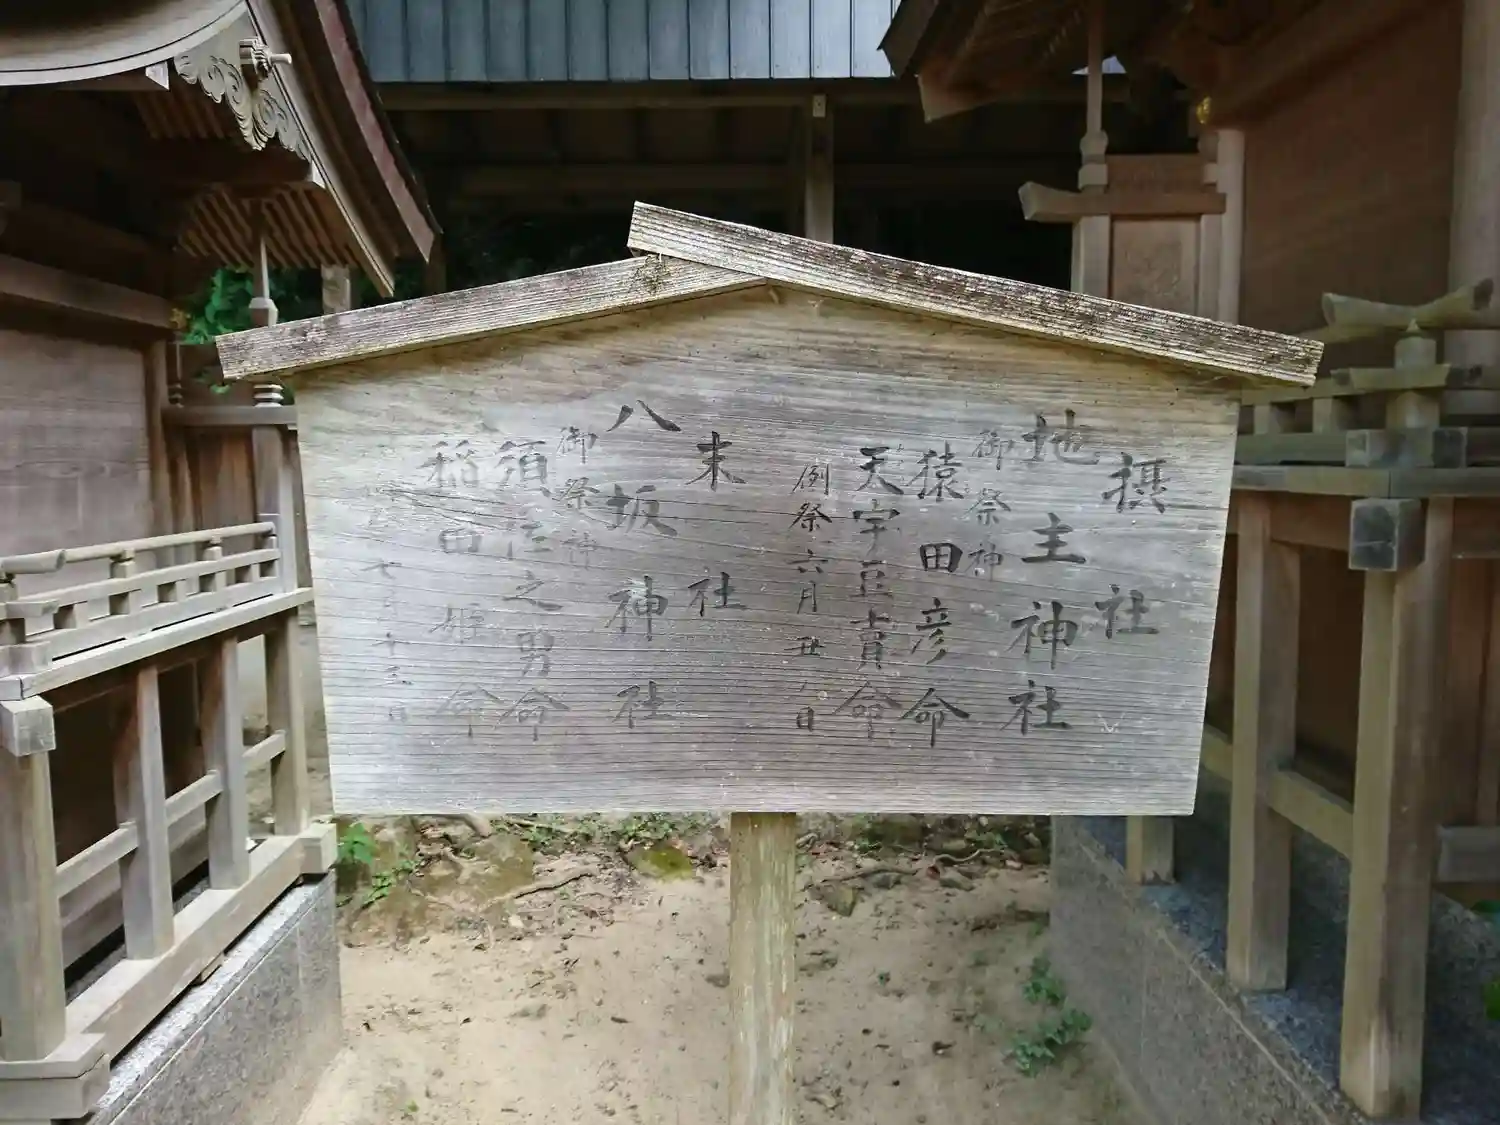 摂社
地主神社
御祭神
猿田彦命
天宇豆賣命
例祭 六月 丑 日
末社
八坂神社
御祭神
須佐之男命
稲田姫命
七月十三日